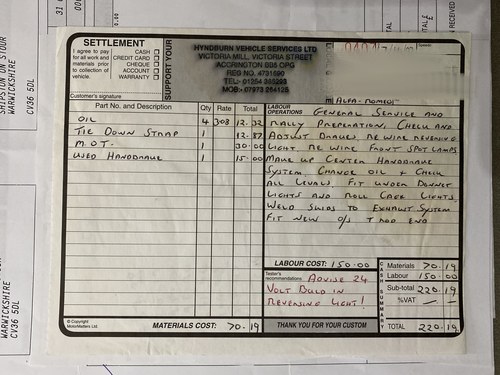 SETTLEMENT
I agree to pay
for all work and
materials prior
to collection of
vehicle.
CASH
CREDIT CARD
CHEQUE
ACCOUNT
WARRANTY
Customer's signature
SUPPORT YOUR
HYNDBURN VEHICLE SERVICES LTD
VICTORIA MILL, VICTORIA STREET
ACCRINGTON BB5 0PG
REG NO. 4731690
MOB: 07973 254125
ALFA - ROMEO
Part No. and Description Qty Rate Total
OIL 4 308 12.32
TIE DOWN STRAP 1 12.87
M.O.T. 1 30.00
USED HANDBRAKE 1 15.00
MATERIALS COST: 70-19
© Copyright
MotorMasters Ltd.
LABOUR
OPERATIONS
GENERAL SERVICE AND
RALLY PREPERATION, CHECK AND
ADJUST BRAKES, RE WIRE REVERSING
LIGHT, RE WIRE FRONT SPOT LAMPS
MAKE UP CENTER HANDBRAKE
SYSTEM. CHANGE OIL + CHECK
ALL LEVELS. FIT UNDER BONNET
LIGHTS AND ROLL CAGE LIGHTS,
WELD SKIDS TO EXHAUST SYSTEM
FIT NEW O/S T ROD END
LABOUR COST: 150.00
Tester's
recommendations:
ADVISE 24
VOLT BULB IN
REVERSING LIGHT!
THANK YOU FOR YOUR CUSTOM
SUMMARY
Materials 70.19
Labour 150.00
Sub-total 220.19
%VAT — —
TOTAL 220.19
WARWICKSHIRE
CV36 5DL
WARWICKSHIRE
CV36 5DL